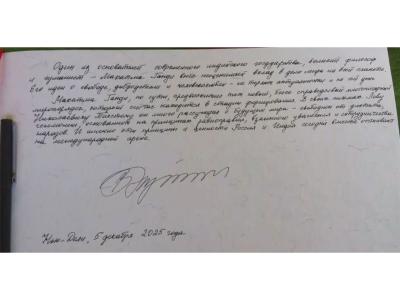 Один из основателей современного индийского государства, великий философ
и гуманист – Махатма Ганди внес неоценимый вклад в дело мира на всей планете.
Его идеи о свободе, добродетели и человеколюбии – не теряют актуальности и по сей день.
Махатма Ганди, по сути, предвосхитил тот новый, более справедливый многополярный
миропорядок, который сейчас находится в стадии формирования. В своих письмах Льву
Николаевичу Толстому он много рассуждал о будущем мира – свободном от диктата,
гегемонии, основанном на принципах равноправия, взаимного уважения и сотрудничества
народов. И именно эти принципы и ценности Россия и Индия сегодня вместе отстаивают
на международной арене.
Нью-Дели, 5 декабря 2025 года